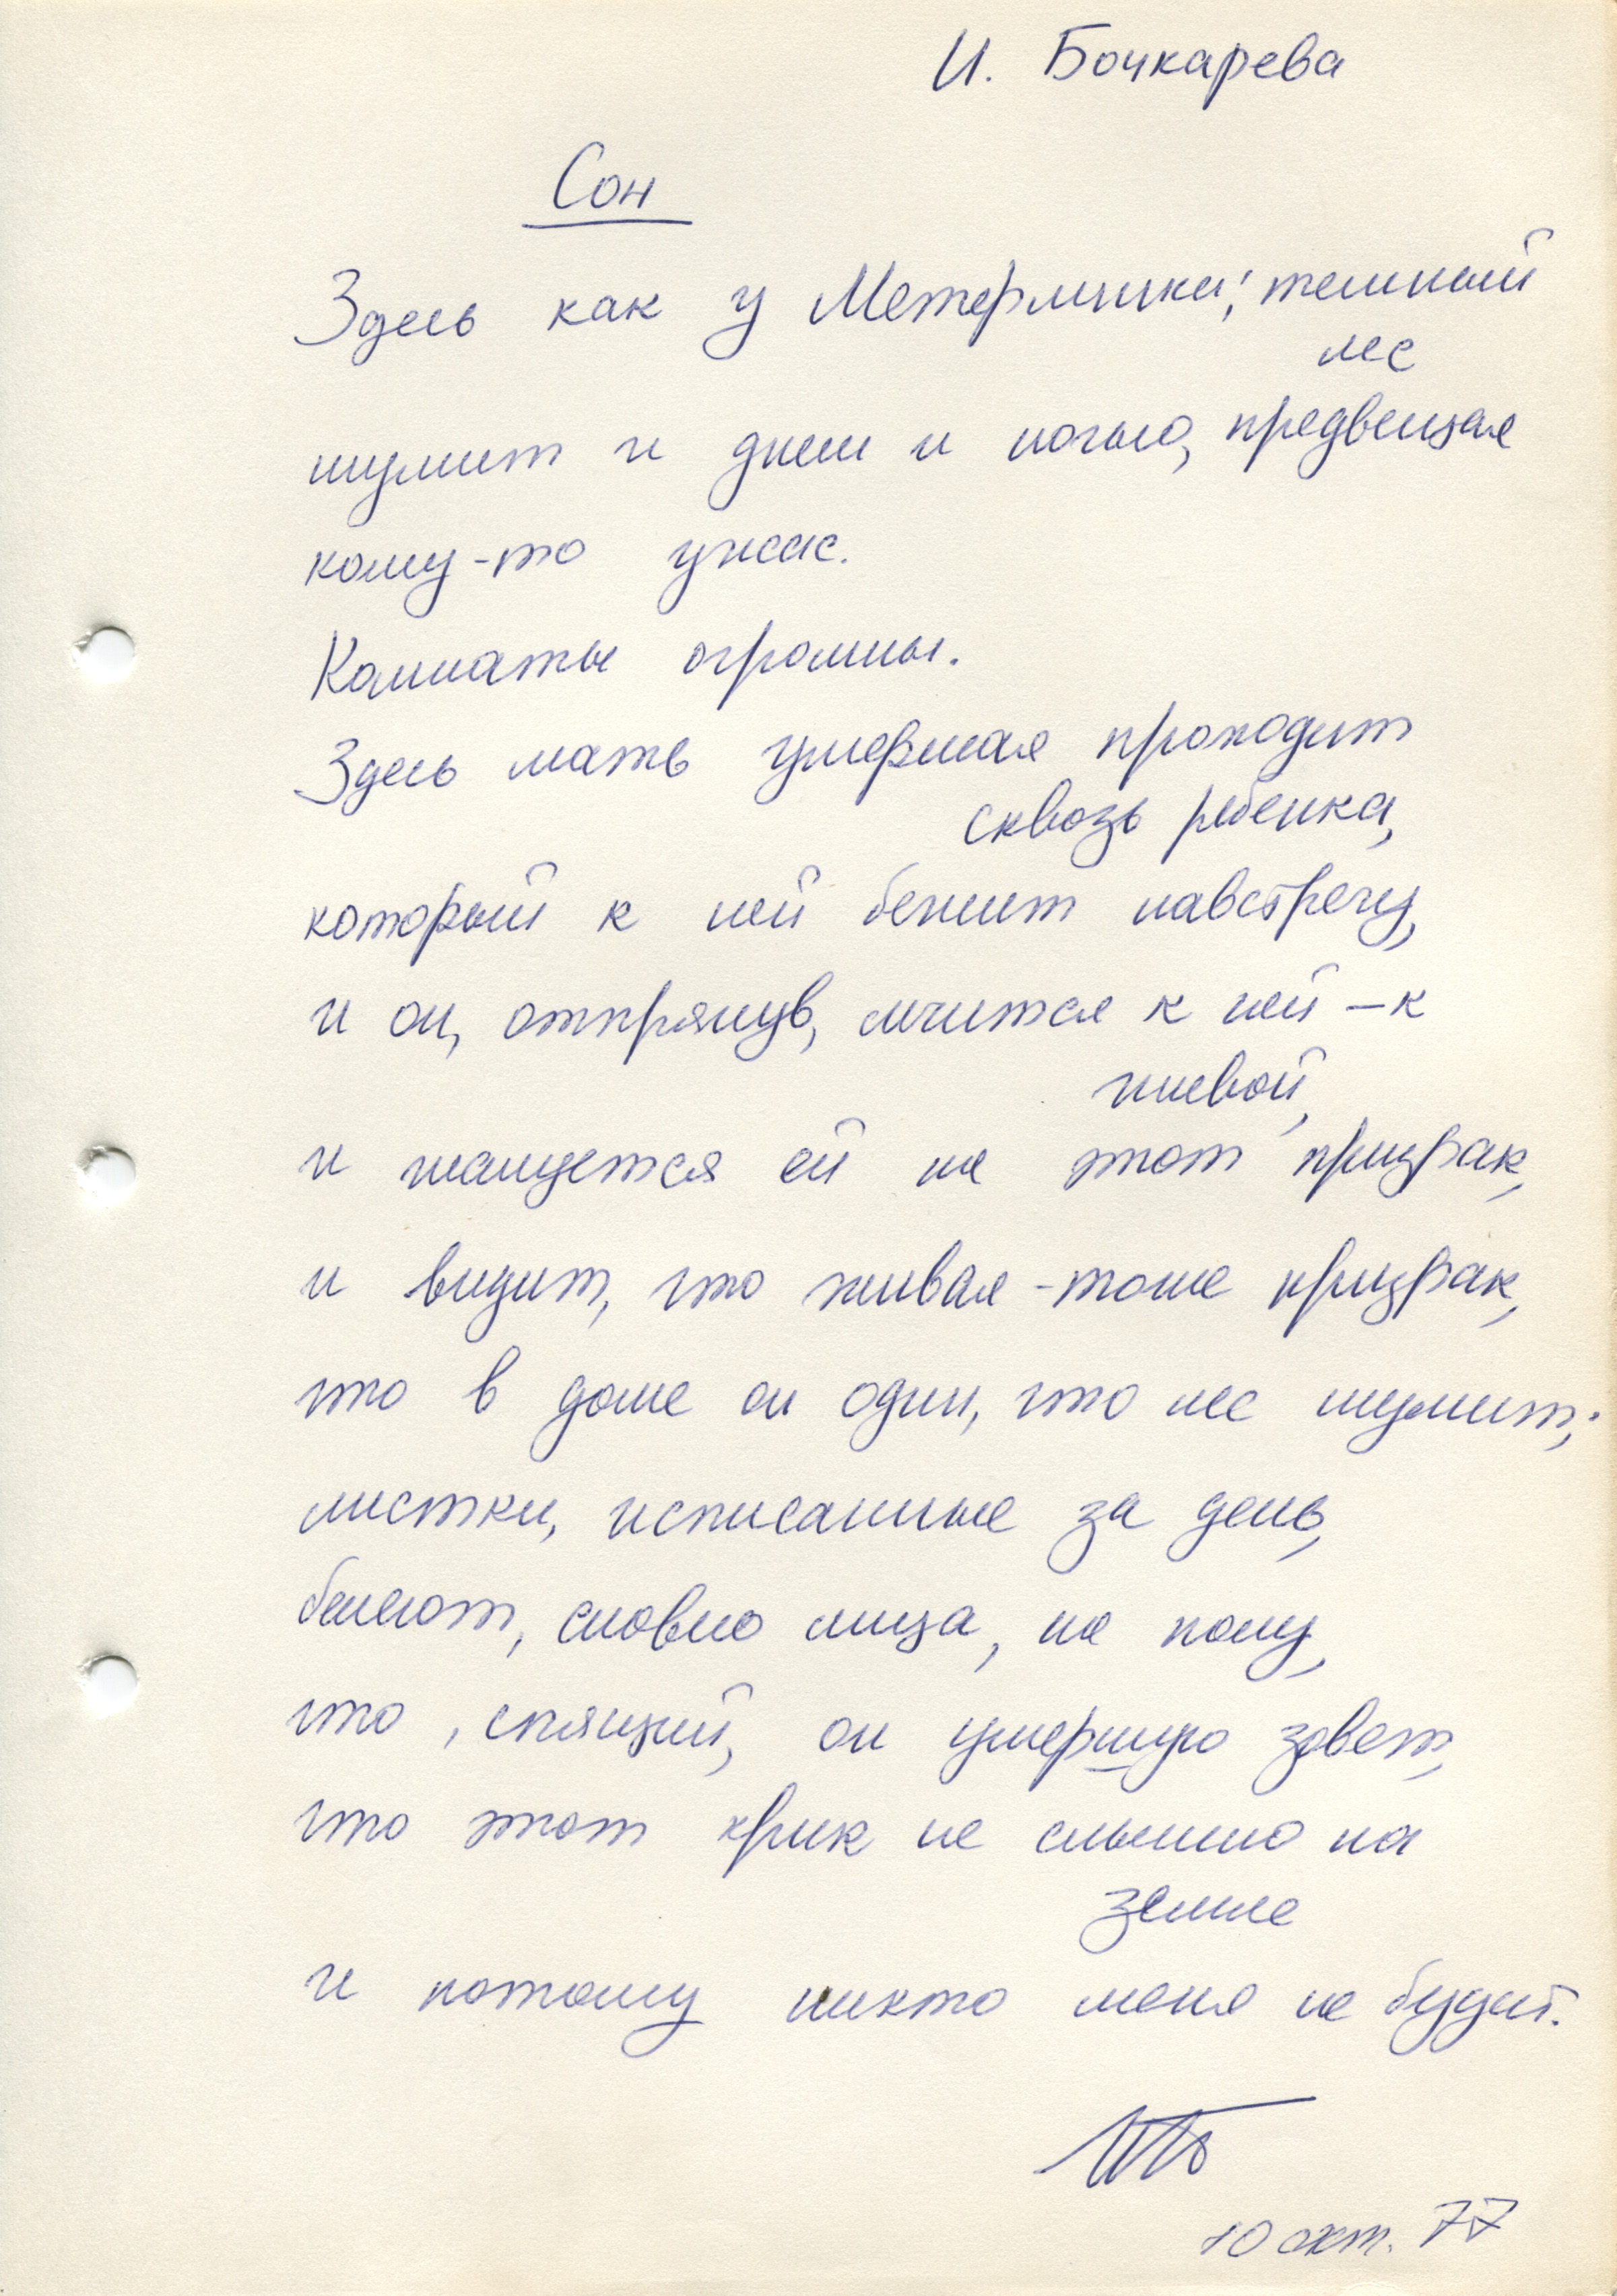 И. Бочкарева
Сон
Здесь как у Метерлинка: темный
лес
шумит и днем и ночью, предвещая
кому-то ужас.
Комнаты огромны.
Здесь мать умершая проходит
сквозь ребенка,
который к ней бежит навстречу,
и он, отпрянув, мчится к ней – к
живой,
и жалуется ей на этот призрак,
и видит, что живая - тоже призрак,
что в доме он один, что лес шумит;
листки, исписанные за день,
белеют, словно лица, на полу,
что, спящий, он умершую зовет,
что этот крик не слышно на
земле
и потому никто меня не будит.
ИБ
10 окт. 77